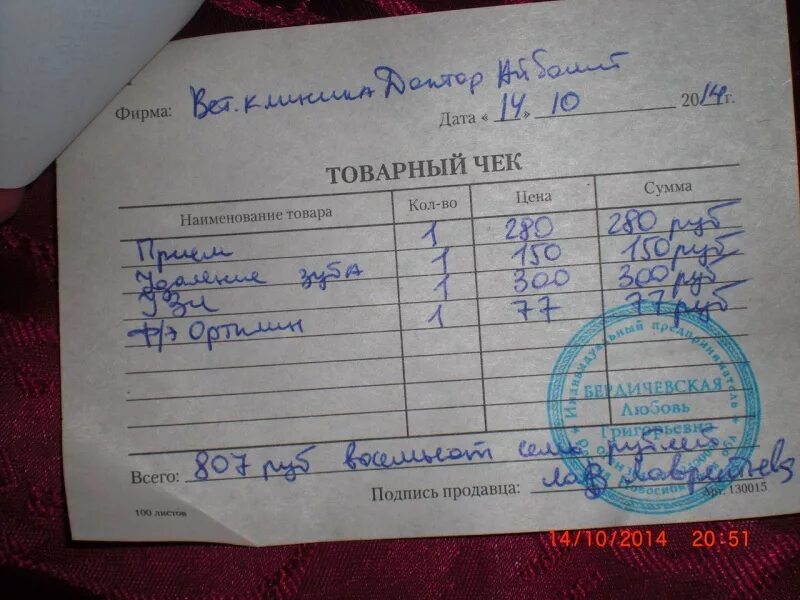 Фирма: Вет. клиника Доктор Айболит
Дата « 14 » 10 2014 г.
ТОВАРНЫЙ ЧЕК
Наименование товара Кол-во Цена Сумма
Прием 1 280 280 руб
Удаление зуба 1 150 150 руб
УЗИ 1 300 300 руб
Ортилин 1 77 77 руб
Всего: 807 руб восемьсот семь рублей
Подпись продавца: Лаврентьева
100 листов
Арт. 130015
Индивидуальный предприниматель
БЕРДИЧЕВСКАЯ
Любовь
Григорьевна
14/10/2014 20:51